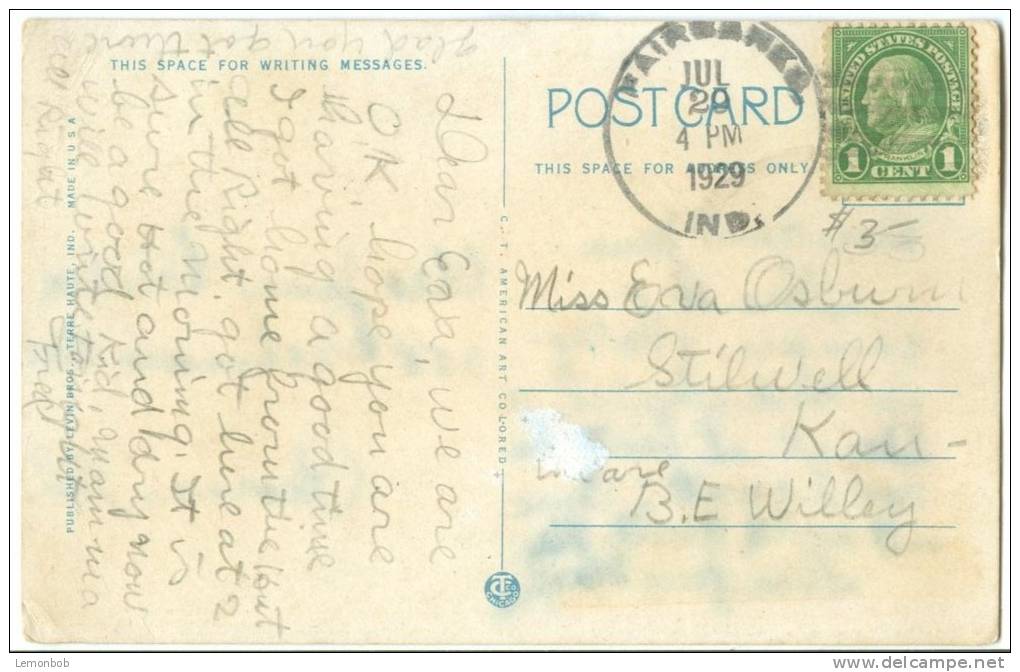 THIS SPACE FOR WRITING MESSAGES.
POST CARD
THIS SPACE FOR ADDRESS ONLY
FAIRBANKS
JUL
29
4 PM
1929
IND.
UNITED STATES POSTAGE
FRANKLIN
1 CENT 1
$3-
Miss Eva Osburn
Stilwell
Kan-
in care
B.E Willey
Dear Eva, we are
OK hope you are
having a good time
I got home from the
all Right. got here at 2
in the morning. It is
sure Hot and dry now
be a good Kid, mamma
will write
Fred
glad you got there
all Right
C. T. AMERICAN ART COLORED
CTC CO
CHICAGO
PUBLISHED BY LEVIN BROS., TERRE HAUTE, IND. MADE IN U.S.A
Lemonbob
delcampe.net